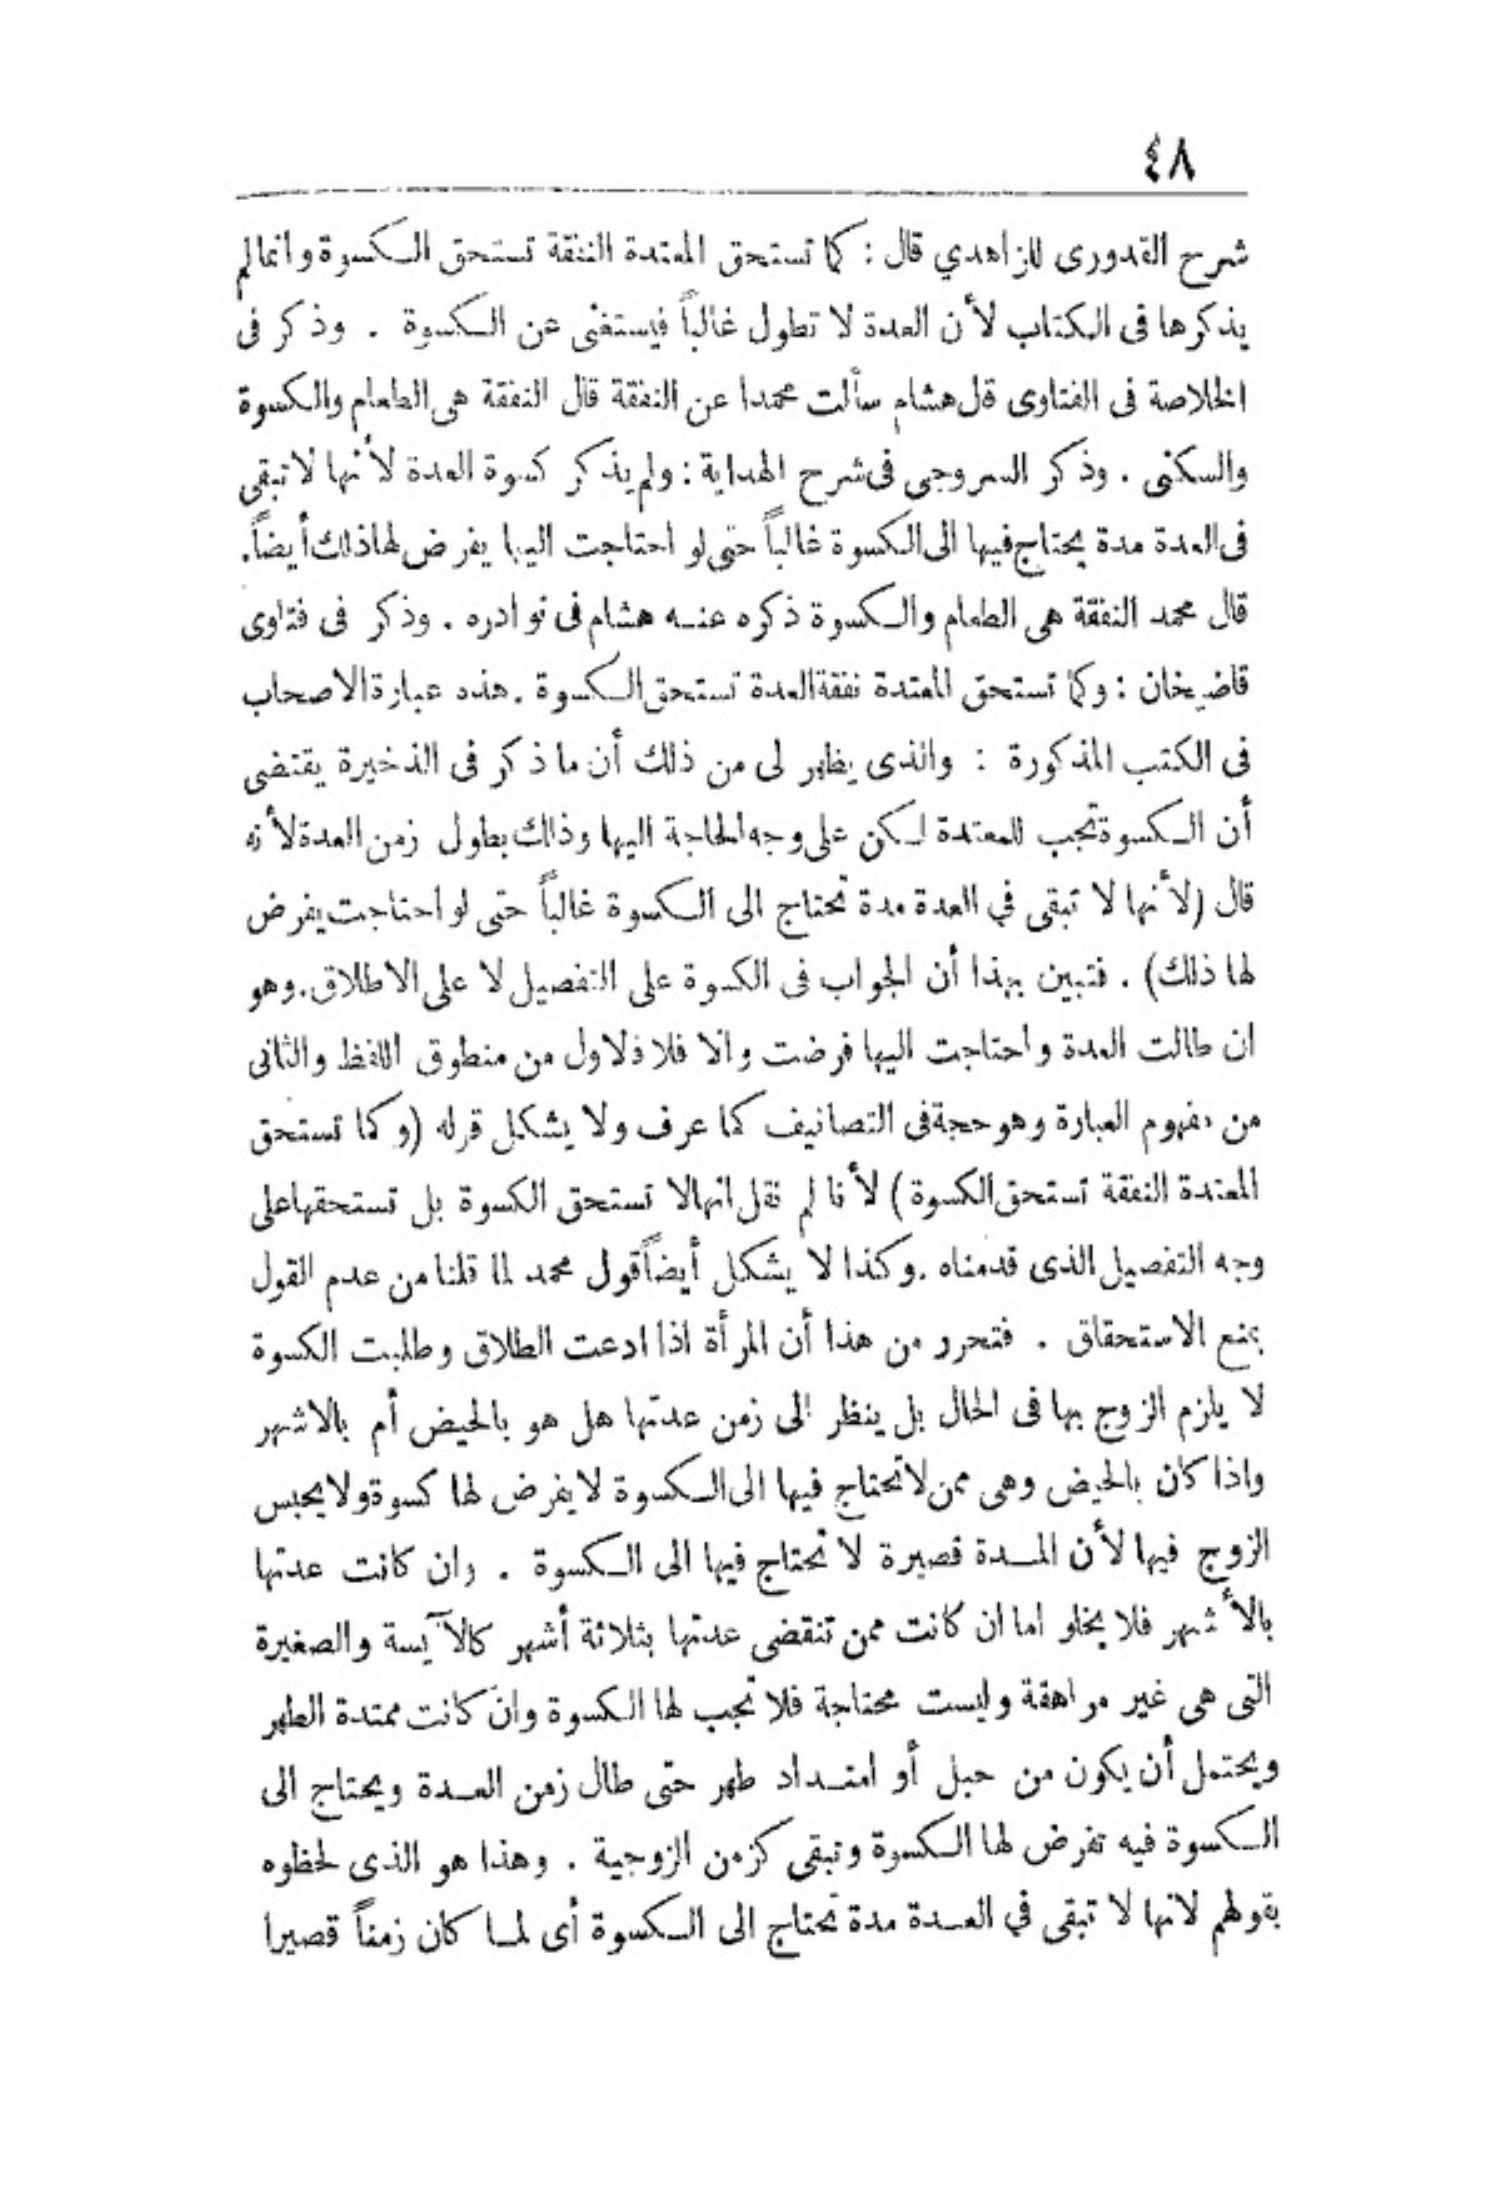 ٤٨
شرح القدورى للزاهدي قال : كما تستحق المعتدة النفقة تستحق الكسوة وانما لم
يذكرها فى الكتاب لأن العدة لا تطول غالباً فيستغنى عن الكسوة . وذكر فى
الخلاصة فى الفتاوى قل هشام سألت محمدا عن النفقة قال النفقة هى الطعام والكسوة
والسكنى . وذكر السروجى فى شرح الهداية : ولم يذكر كسوة العدة لأنها لا تبقى
فى العدة مدة يحتاج فيها الى الكسوة غالباً حتى لو احتاجت اليها يفرض لها ذلك أيضاً .
قال محمد النفقة هى الطعام والكسوة ذكره عنه هشام فى نوادره . وذكر فى فتاوى
قاضيخان : وكما تستحق المعتدة نفقة العدة تستحق الكسوة . هذه عبارة الاصحاب
فى الكتب المذكورة : والذى يظهر لى من ذلك أن ما ذكر فى الذخيرة يقتضى
أن الكسوة تجب للمعتدة لكن على وجه الحاجة اليها وذلك بطول زمن العدة لأنه
قال (لأنها لا تبقى في العدة مدة تحتاج الى الكسوة غالباً حتى لو احتاجت يفرض
لها ذلك) . فتبين بهذا أن الجواب فى الكسوة على التفصيل لا على الاطلاق . وهو
ان طالت العدة واحتاجت اليها فرضت والا فلا فلاول من منطوق اللفظ والثانى
من مفهوم العبارة وهو حجة فى التصانيف كما عرف ولا يشكل قوله (وكما تستحق
المعتدة النفقة تستحق الكسوة) لأنا لم نقل انها لا تستحق الكسوة بل تستحقها على
وجه التفصيل الذى قدمناه . وكذا لا يشكل أيضاً قول محمد لما قلنا من عدم القول
بمنع الاستحقاق . فتحرر من هذا أن المرأة اذا ادعت الطلاق وطلبت الكسوة
لا يلزم الزوج بها فى الحال بل ينظر الى زمن عدتها هل هو بالحيض أم بالاشهر
واذا كان بالحيض وهى ممن لا تحتاج فيها الى الكسوة لا يفرض لها كسوة ولا يحبس
الزوج فيها لأن المدة قصيرة لا تحتاج فيها الى الكسوة . وان كانت عدتها
بالأشهر فلا يخلو اما ان كانت ممن تنقضى عدتها بثلاثة أشهر كالآيسة والصغيرة
التى هى غير مراهقة وليست محتاجة فلا تجب لها الكسوة وان كانت ممتدة الطهر
ويحتمل أن يكون من حبل أو امتداد طهر حتى طال زمن العدة ويحتاج الى
الكسوة فيه تفرض لها الكسوة وتبقى كزمن الزوجية . وهذا هو الذى لحظوه
بقولهم لانها لا تبقى في العدة مدة تحتاج الى الكسوة أى لما كان زمناً قصيرا